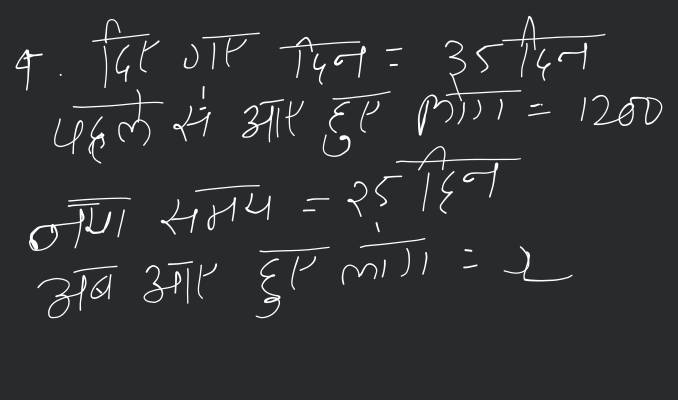 4. दिए गए दिन = 35 दिन
पहले से आए हुए लोग = 1200
नया समय = 25 दिन
अब आए हुए लोग = x